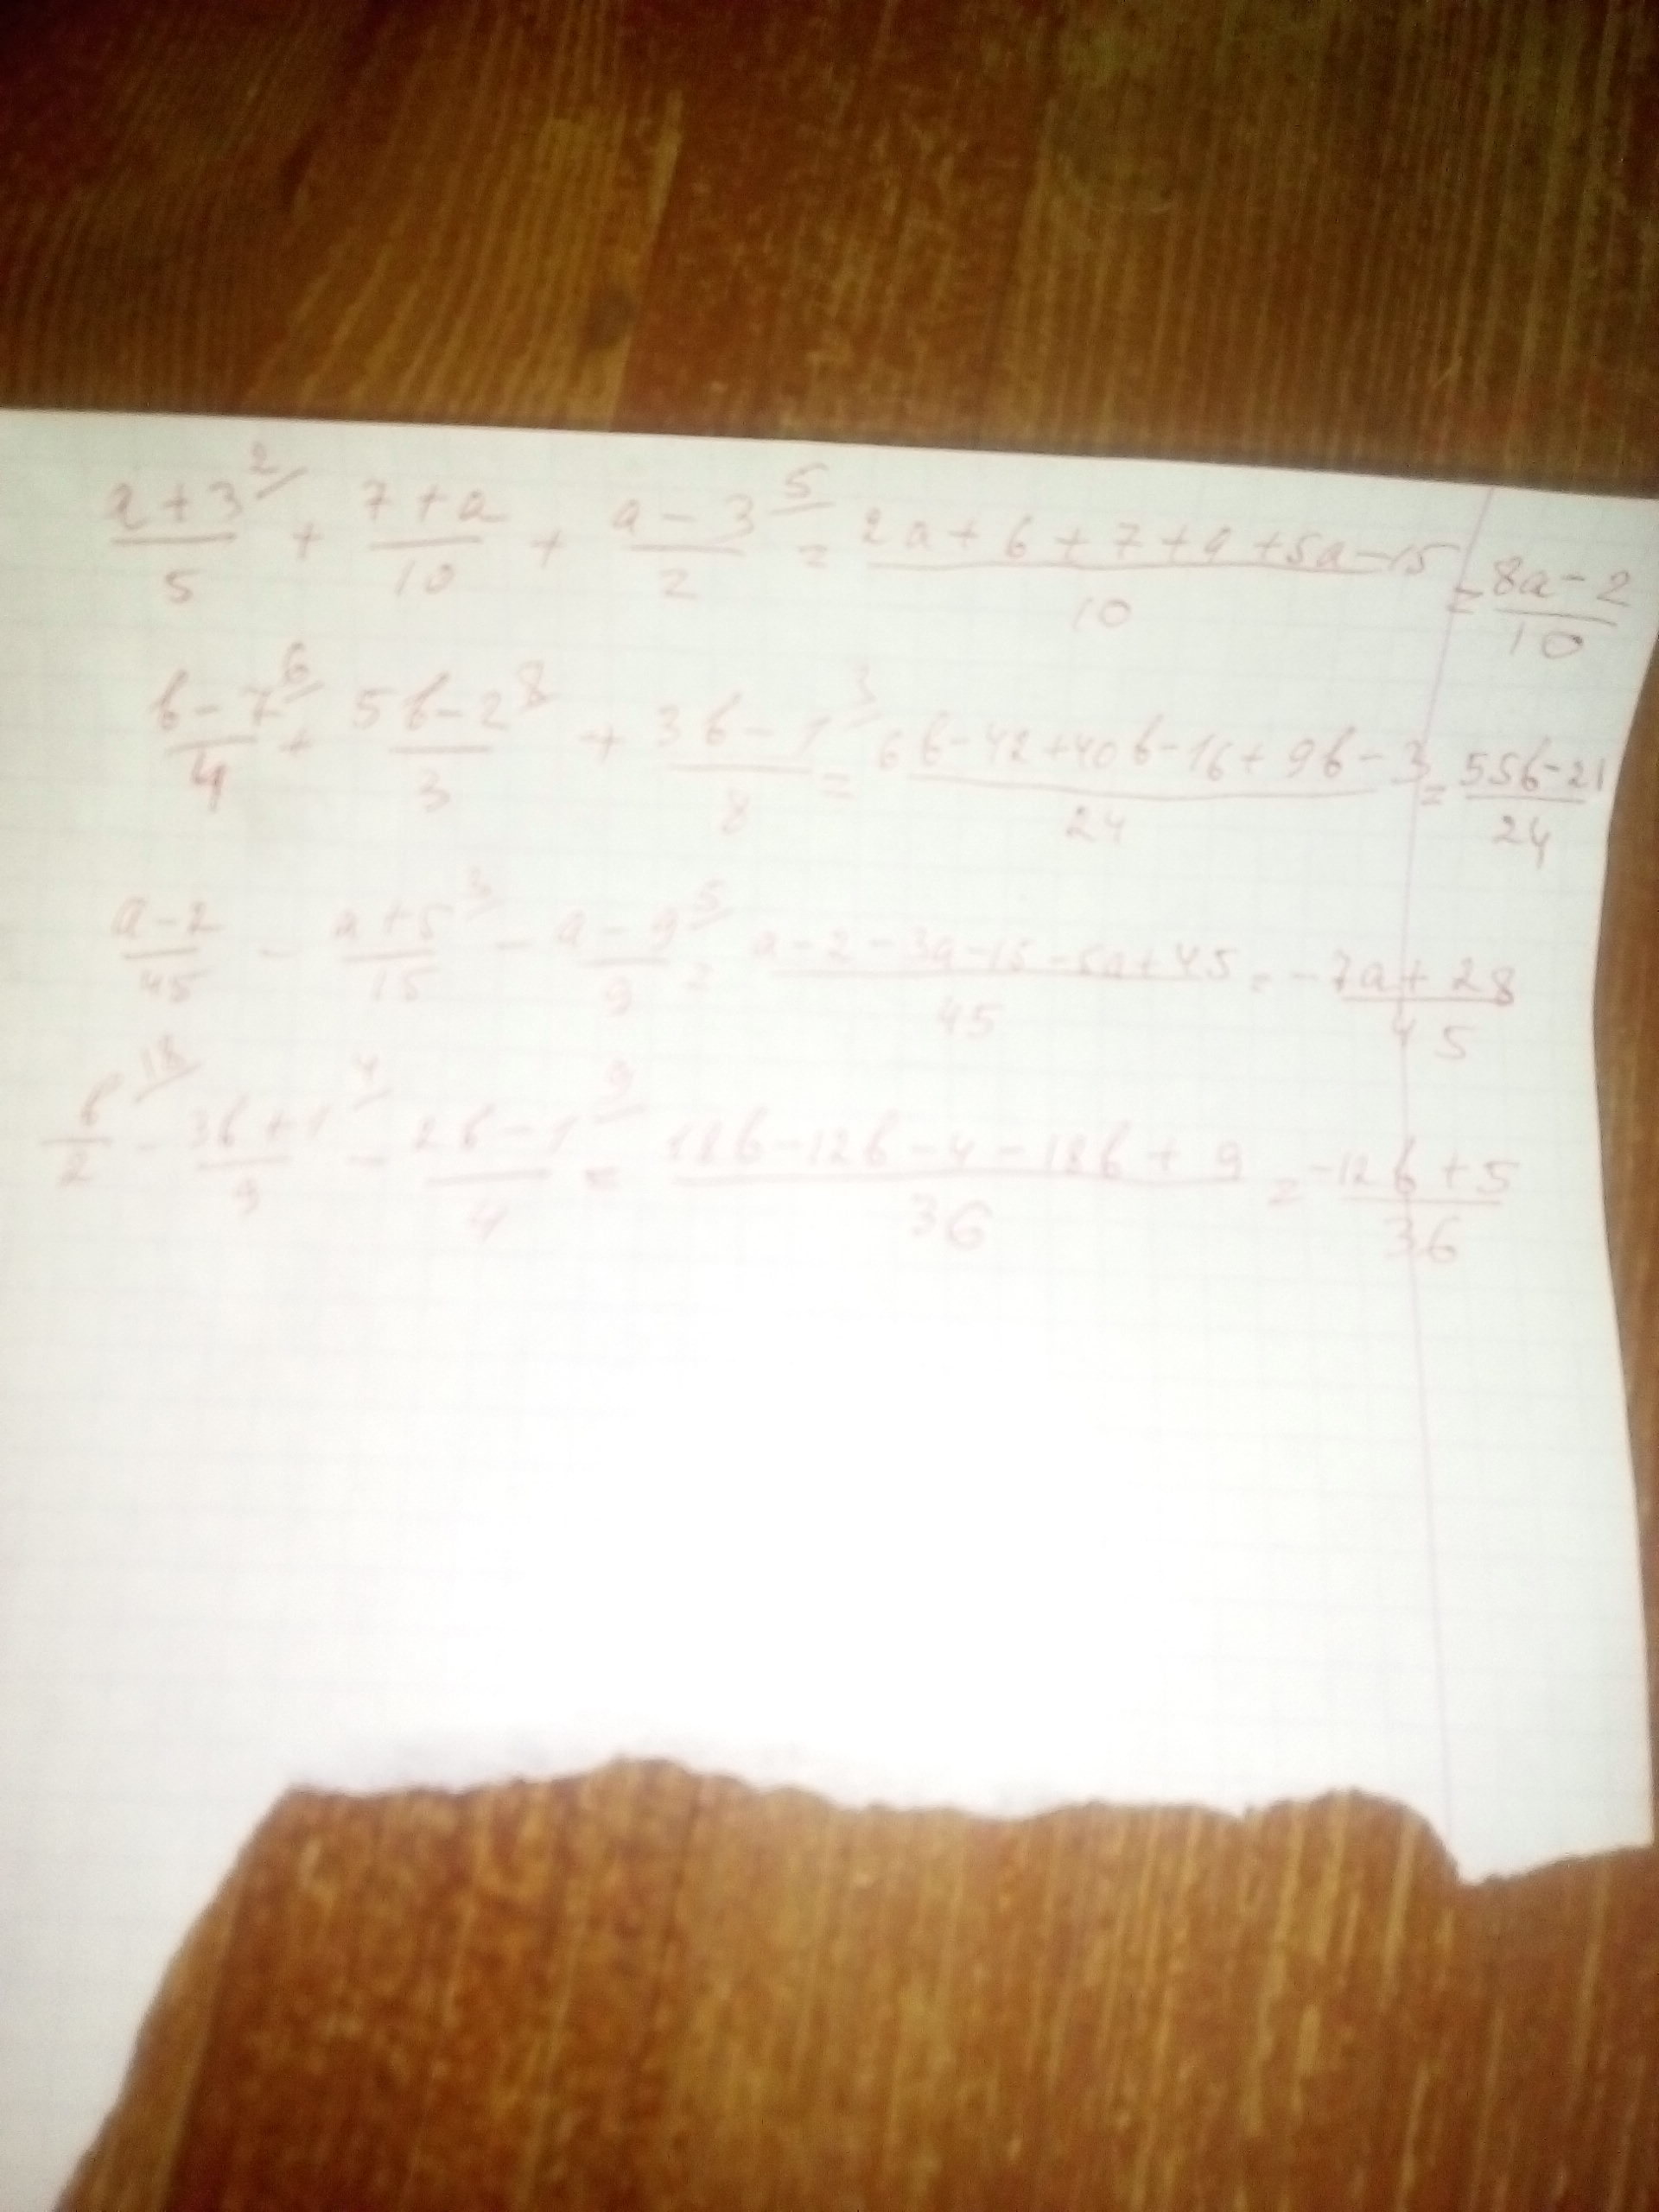 a+3²/5 + 7+a/10 + a-3⁵/2 = 2a+6+7+a+5a-15/10 = 8a-2/10
b-7⁶/4 + 5b-2⁸/3 + 3b-1³/8 = 6b-42+40b-16+9b-3/24 = 55b-21/24
a-2/45 - a+5³/15 - a-9⁵/9 = a-2-3a-15-5a+45/45 = -7a+28/45
b¹⁸/2 - 3b+1⁴/9 - 2b-1⁹/4 = 18b-12b-4-18b+9/36 = -12b+5/36